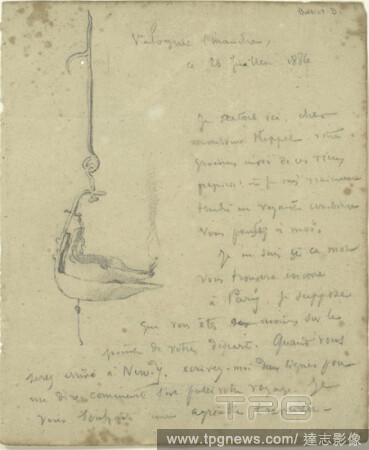 Buhot D.
Valognes (Manche)
ce 26 Juillet 1886
Je reçois ici, cher
monsieur Keppel, votre
gracieux envoi de ces vieux
papiers et je suis vraiment
touché en voyant combien
vous pensez à moi.
Je ne sais si ce mot
vous trouvera encore
à Paris. Je suppose
que vous êtes au moins sur le
point de votre départ. Quand vous
serez arrivé à New-Y. écrivez-moi deux lignes pour
me dire comment s'est faite votre voyage. Je
vous souhaite une agréable traversée.
TPG
www.tpgnews.com / 達志影像